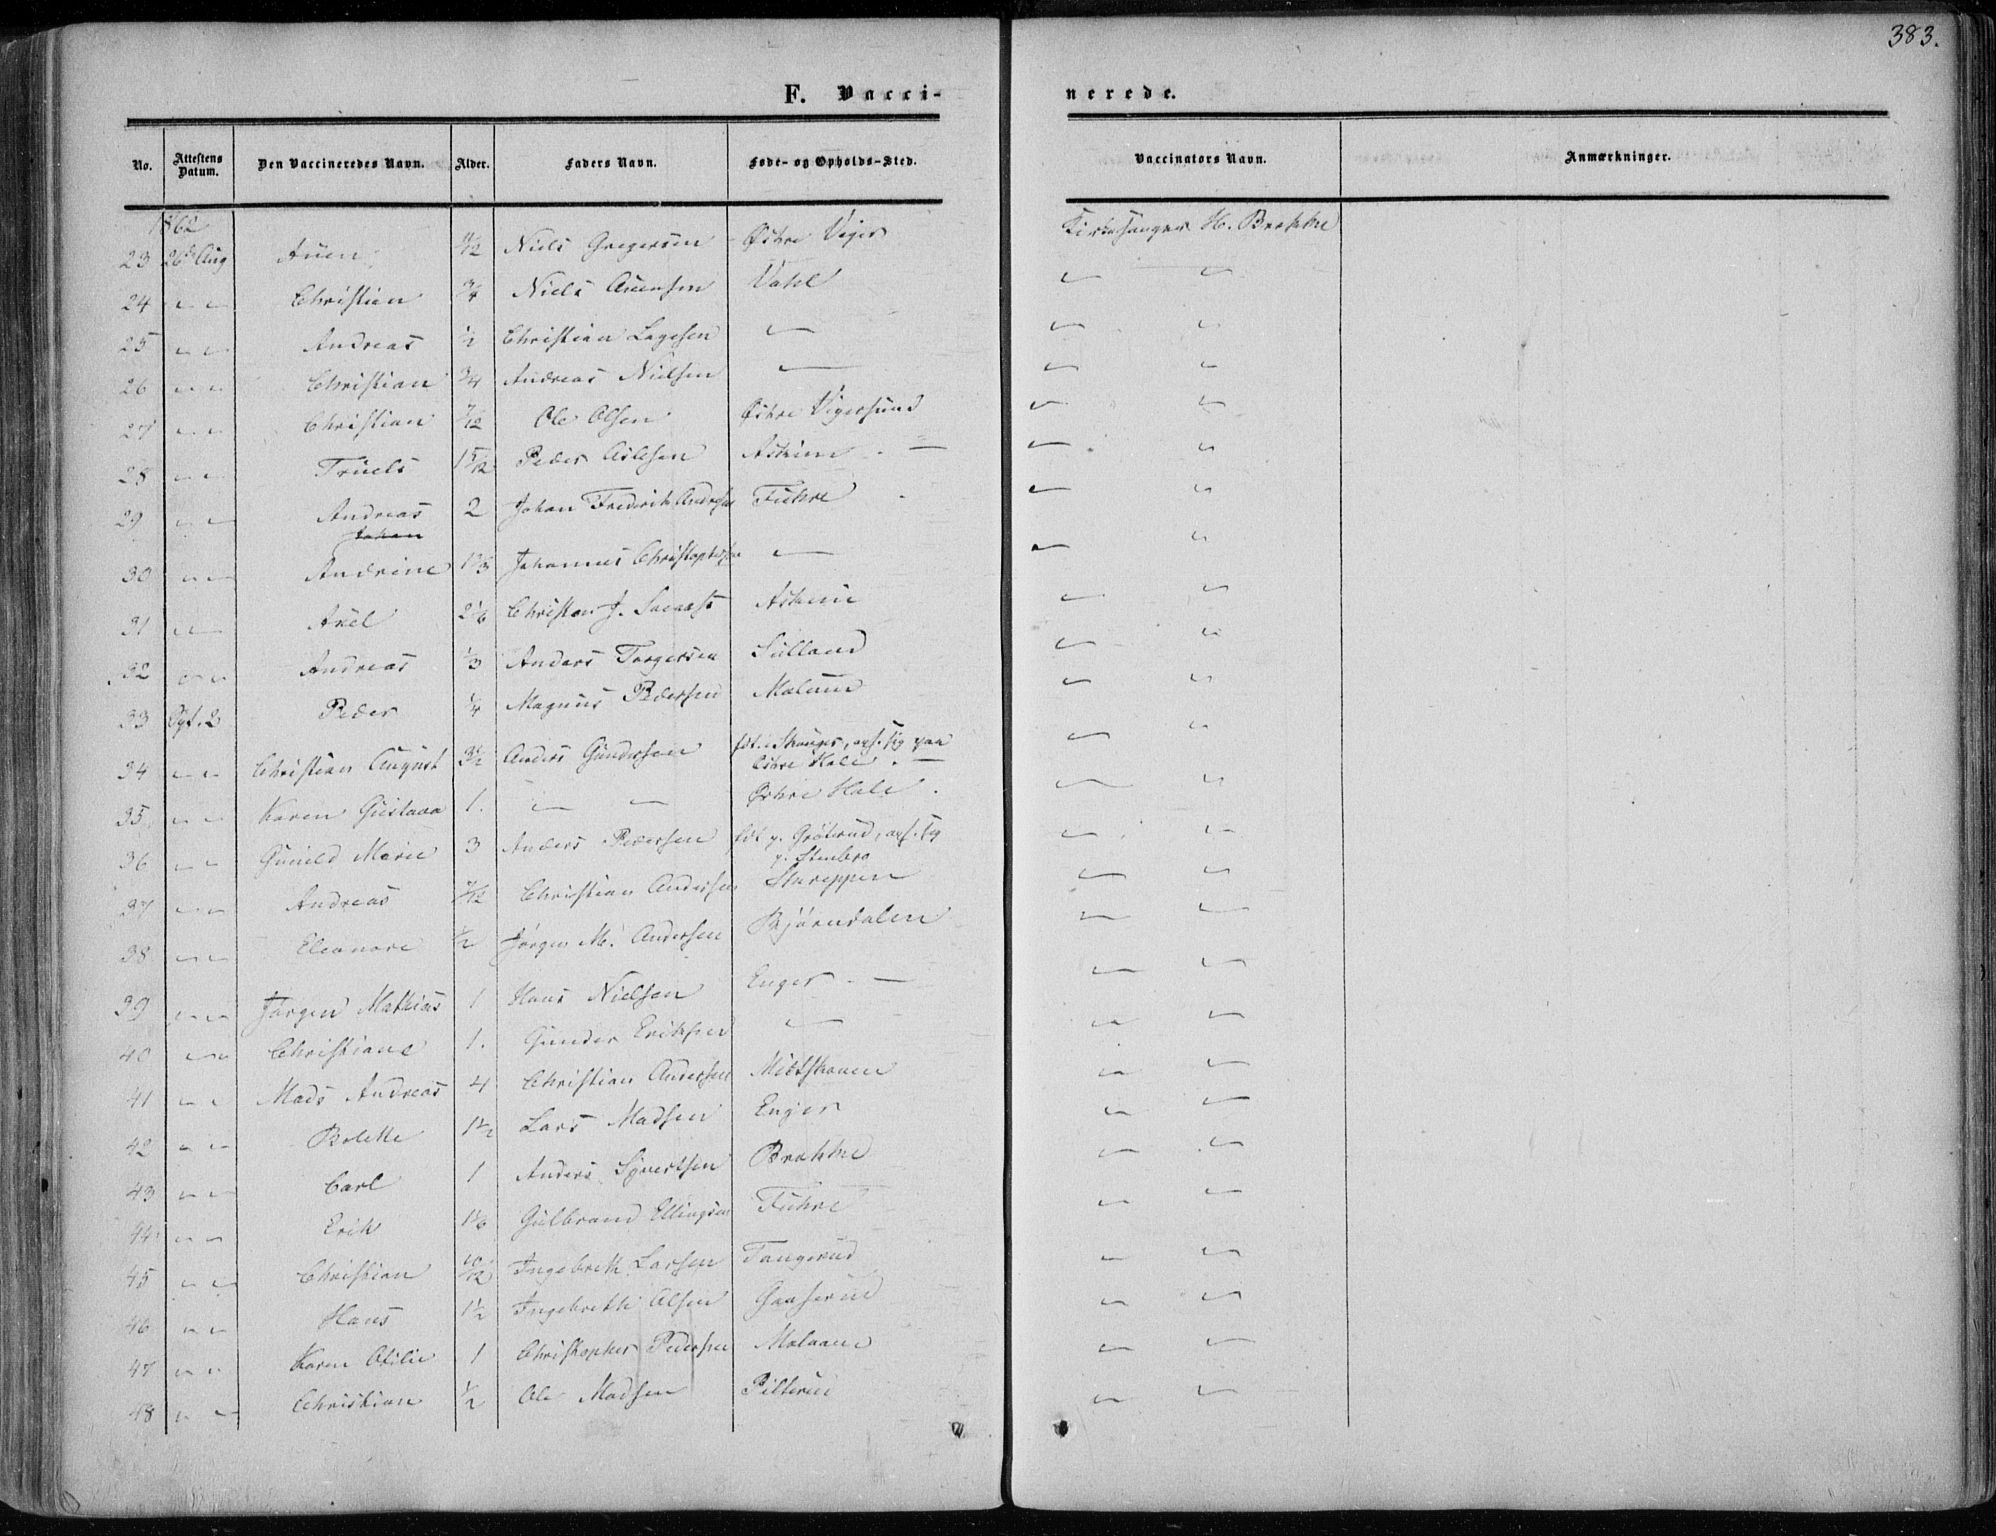 383.
F. Vacci-
nerede.
No. Attestens Datum. Den Vaccineredes Navn. Alder. Faders Navn. Føde- og Opholds-Sted. Vaccinators Navn. Anmærkninger.
1862
23 26de Aug Auen Niels Gregersen Østre Viger Kirkesanger H. Brekke
24 " " Christian 3/4 Niels Auensen " "
25 " " Andreas 1/2 Christian Lagesen " " "
26 " " Christian 3/4 Andreas Nielsen " " "
27 " " Christian 7/12 Ole Olsen Østre Vigersund " "
28 " " Truels 1 5/12 Peder Aslesen Askim " "
29 " " Andreas 2 Johan Fredrik Andersen Fuhre " "
Johan
30 " " Andrine Johannes Christophersen " " "
31 " " Axel 2 1/6 Christen J. Askim " "
32 " " Andreas 1/3 Anders Torgersen " "
33 Spt. 2 Peder 1/4 Magnus Pedersen " "
34 " " Christian August 3 1/2 Anders Gundersen født i Skouger, oph. sig paa " "
østre Hole
35 " " Karen Gustava 1. " " Østre Hole " "
36 " " Gunild Marie 3 Anders Pedersen født p. Grøterud, oph. sig " "
p. Stenbro
37 " " Andreas 7/12 Christian Andersen " "
38 " " Eleonore 1/2 Jørgen M. Andersen Bjørndalen " "
39 " " Jørgen Mathias 1 Hans Nielsen Enger " "
40 " " Christiane 1. Gunder Eriksen " " "
41 " " Mads Andreas 4 Christian Andersen Midtskouen " "
42 " " Bolette 1 1/2 Lars Madsen Enger " "
43 " " Carl 1 Anders Syvertsen Brekke " "
44 " " Erik 1 1/6 Gulbrand Ellingsen Fuhre " "
45 " " Christian 10/12 Ingebreth Larsen Tangerud " "
46 " " Hans 1 1/2 Ingebreth Olsen Gaaserud " "
47 " " Karen Otilie 1 Christopher Pedersen " "
48 " " Christian 1/2 Ole Madsen Pilterud " "